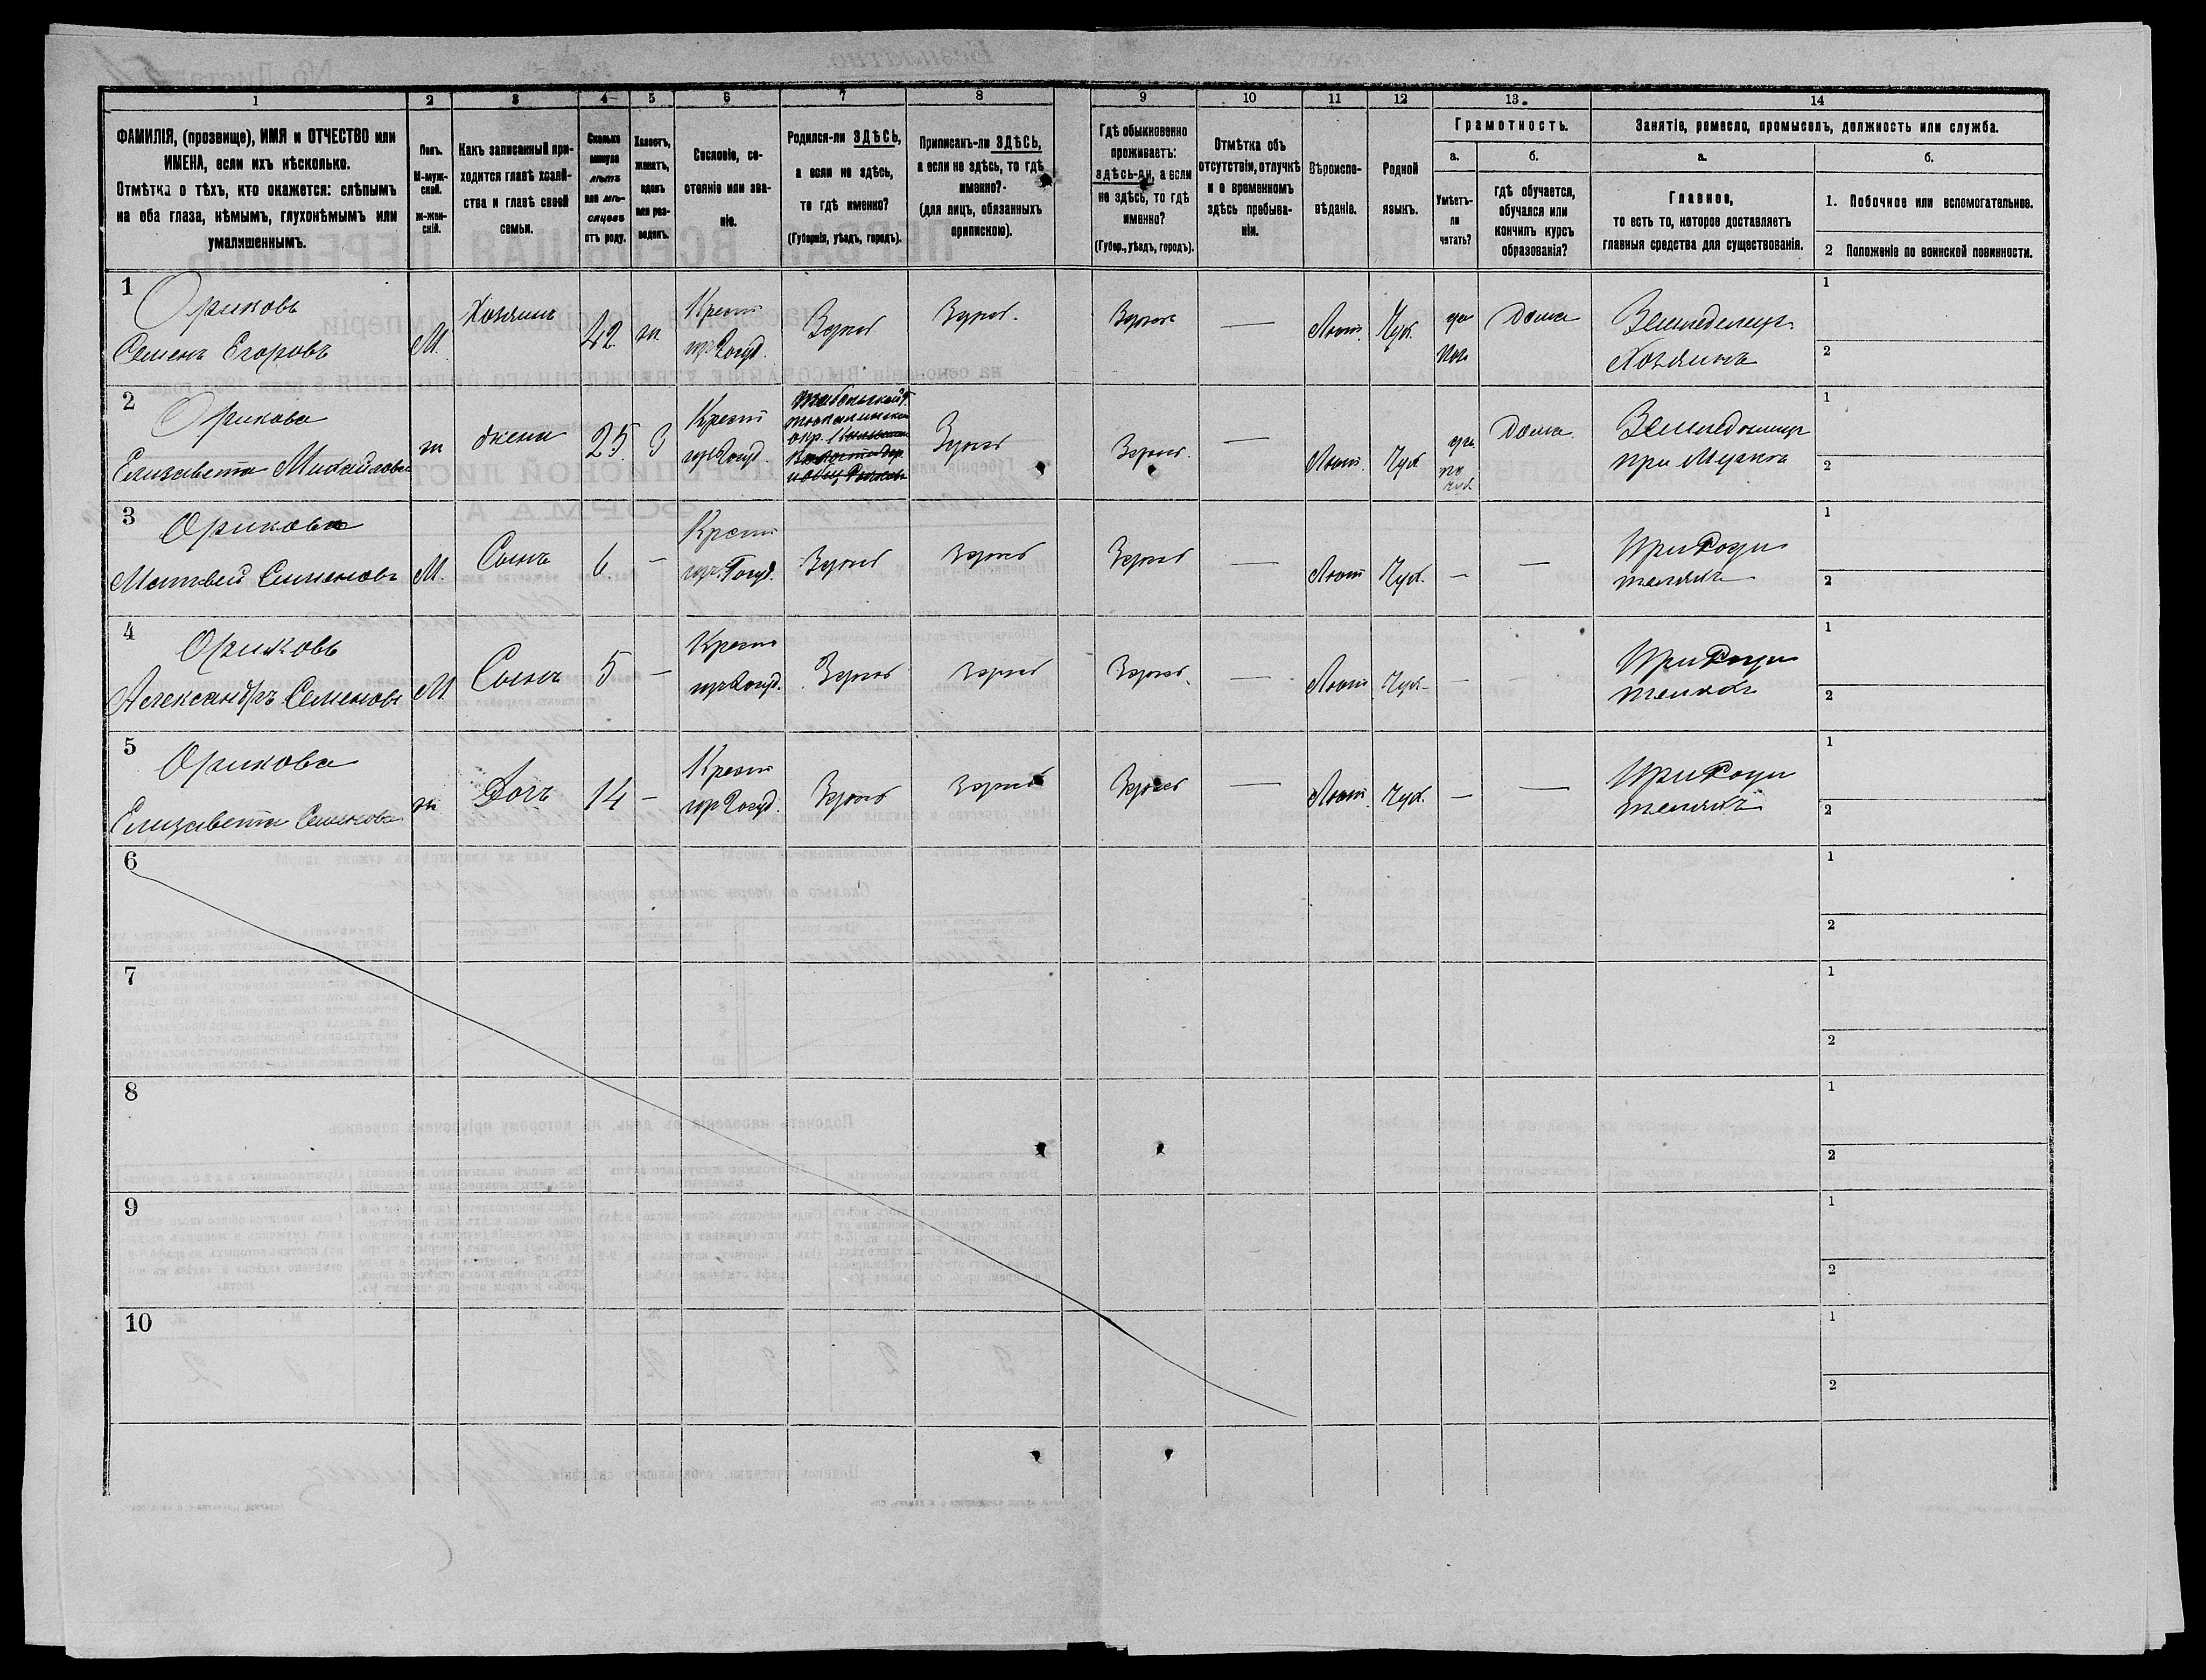 1 2 3 4 5 6 7 8 9 10 11 12 13 14
ФАМИЛІЯ, (прозвище), ИМЯ и ОТЧЕСТВО или
ИМЕНА, если ихъ нѣсколько.
Отмѣтка о тѣхъ, кто окажется: слѣпымъ
на оба глаза, нѣмымъ, глухонѣмымъ или
умалишеннымъ.
Полъ.
М-муж-
ской.
ж-жен-
скій.
Какъ записанный при-
ходится главѣ хозяй-
ства и главѣ своей
семьи.
Сколько
минуло
лѣтъ
или мѣ-
сяцевъ
отъ роду.
Холостъ,
женатъ,
вдовъ
или раз-
веденъ.
Сословіе, со-
стояніе или зва-
ніе.
Родился-ли ЗДѢСЬ,
а если не здѣсь,
то гдѣ именно?
(Губернія, уѣздъ, городъ).
Приписанъ-ли ЗДѢСЬ,
а если не здѣсь, то гдѣ
именно?
(для лицъ, обязанныхъ
припискою).
Гдѣ обыкновенно
проживаетъ:
здѣсь-ли, а если
не здѣсь, то гдѣ
именно?
(Губер., уѣздъ, городъ).
Отмѣтка объ
отсутствіи, отлучкѣ
и о временномъ
здѣсь пребыва-
ніи.
Вѣроиспо-
вѣданіе.
Родной
языкъ.
Грамотность.
а.
Умѣетъ-
ли
читать?
б.
гдѣ обучается,
обучался или
кончилъ курсъ
образованія?
Занятіе, ремесло, промыселъ, должность или служба.
а.
Главное,
то есть то, которое доставляетъ
главныя средства для существованія.
б.
1. Побочное или вспомогательное.
2 Положеніе по воинской повинности.
1
Ориковъ
Семенъ Егоровъ
М.
Хозяинъ
42
ж.
Крест
Здѣсь
Здѣсь.
Здѣсь
—
Лют.
Чух.
да
Дома
Земледелецъ
Хозяинъ
1
2
2
Орикова
Елизавета Михайлова
ж
жена
25
З
Крест
Тобольской г.
окр.
Здѣсь
Здѣсь.
—
Лют.
Чух
да
по
чух
Дома
Земледелицъ
при Мужѣ
1
2
3
Ориковъ
Матвей Семеновъ
М.
Сынъ
6
—
Крест
Здѣсь
Здѣсь
Здѣсь
—
Лют
Чух.
—
—
При Роди
теляхъ
1
2
4
Ориковъ
Александръ Семеновъ
М
Сынъ
5
—
Крест
Здѣсь
Здѣсь
Здѣсь.
—
Лют
Чух.
—
—
При Роди
теляхъ
1
2
5
Орикова
Елизавета Семенова
ж
Дочь
14
—
Крест
Здѣсь
Здѣсь
Здѣсь
—
Лют.
Чух.
—
—
При Роди
теляхъ
1
2
6
1
2
7
1
2
8
1
2
9
1
2
10
1
2